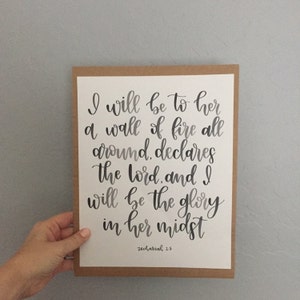 I will be to her
a wall of fire all
around, declares
the Lord, and I
will be the glory
in her midst
zechariah 2:5